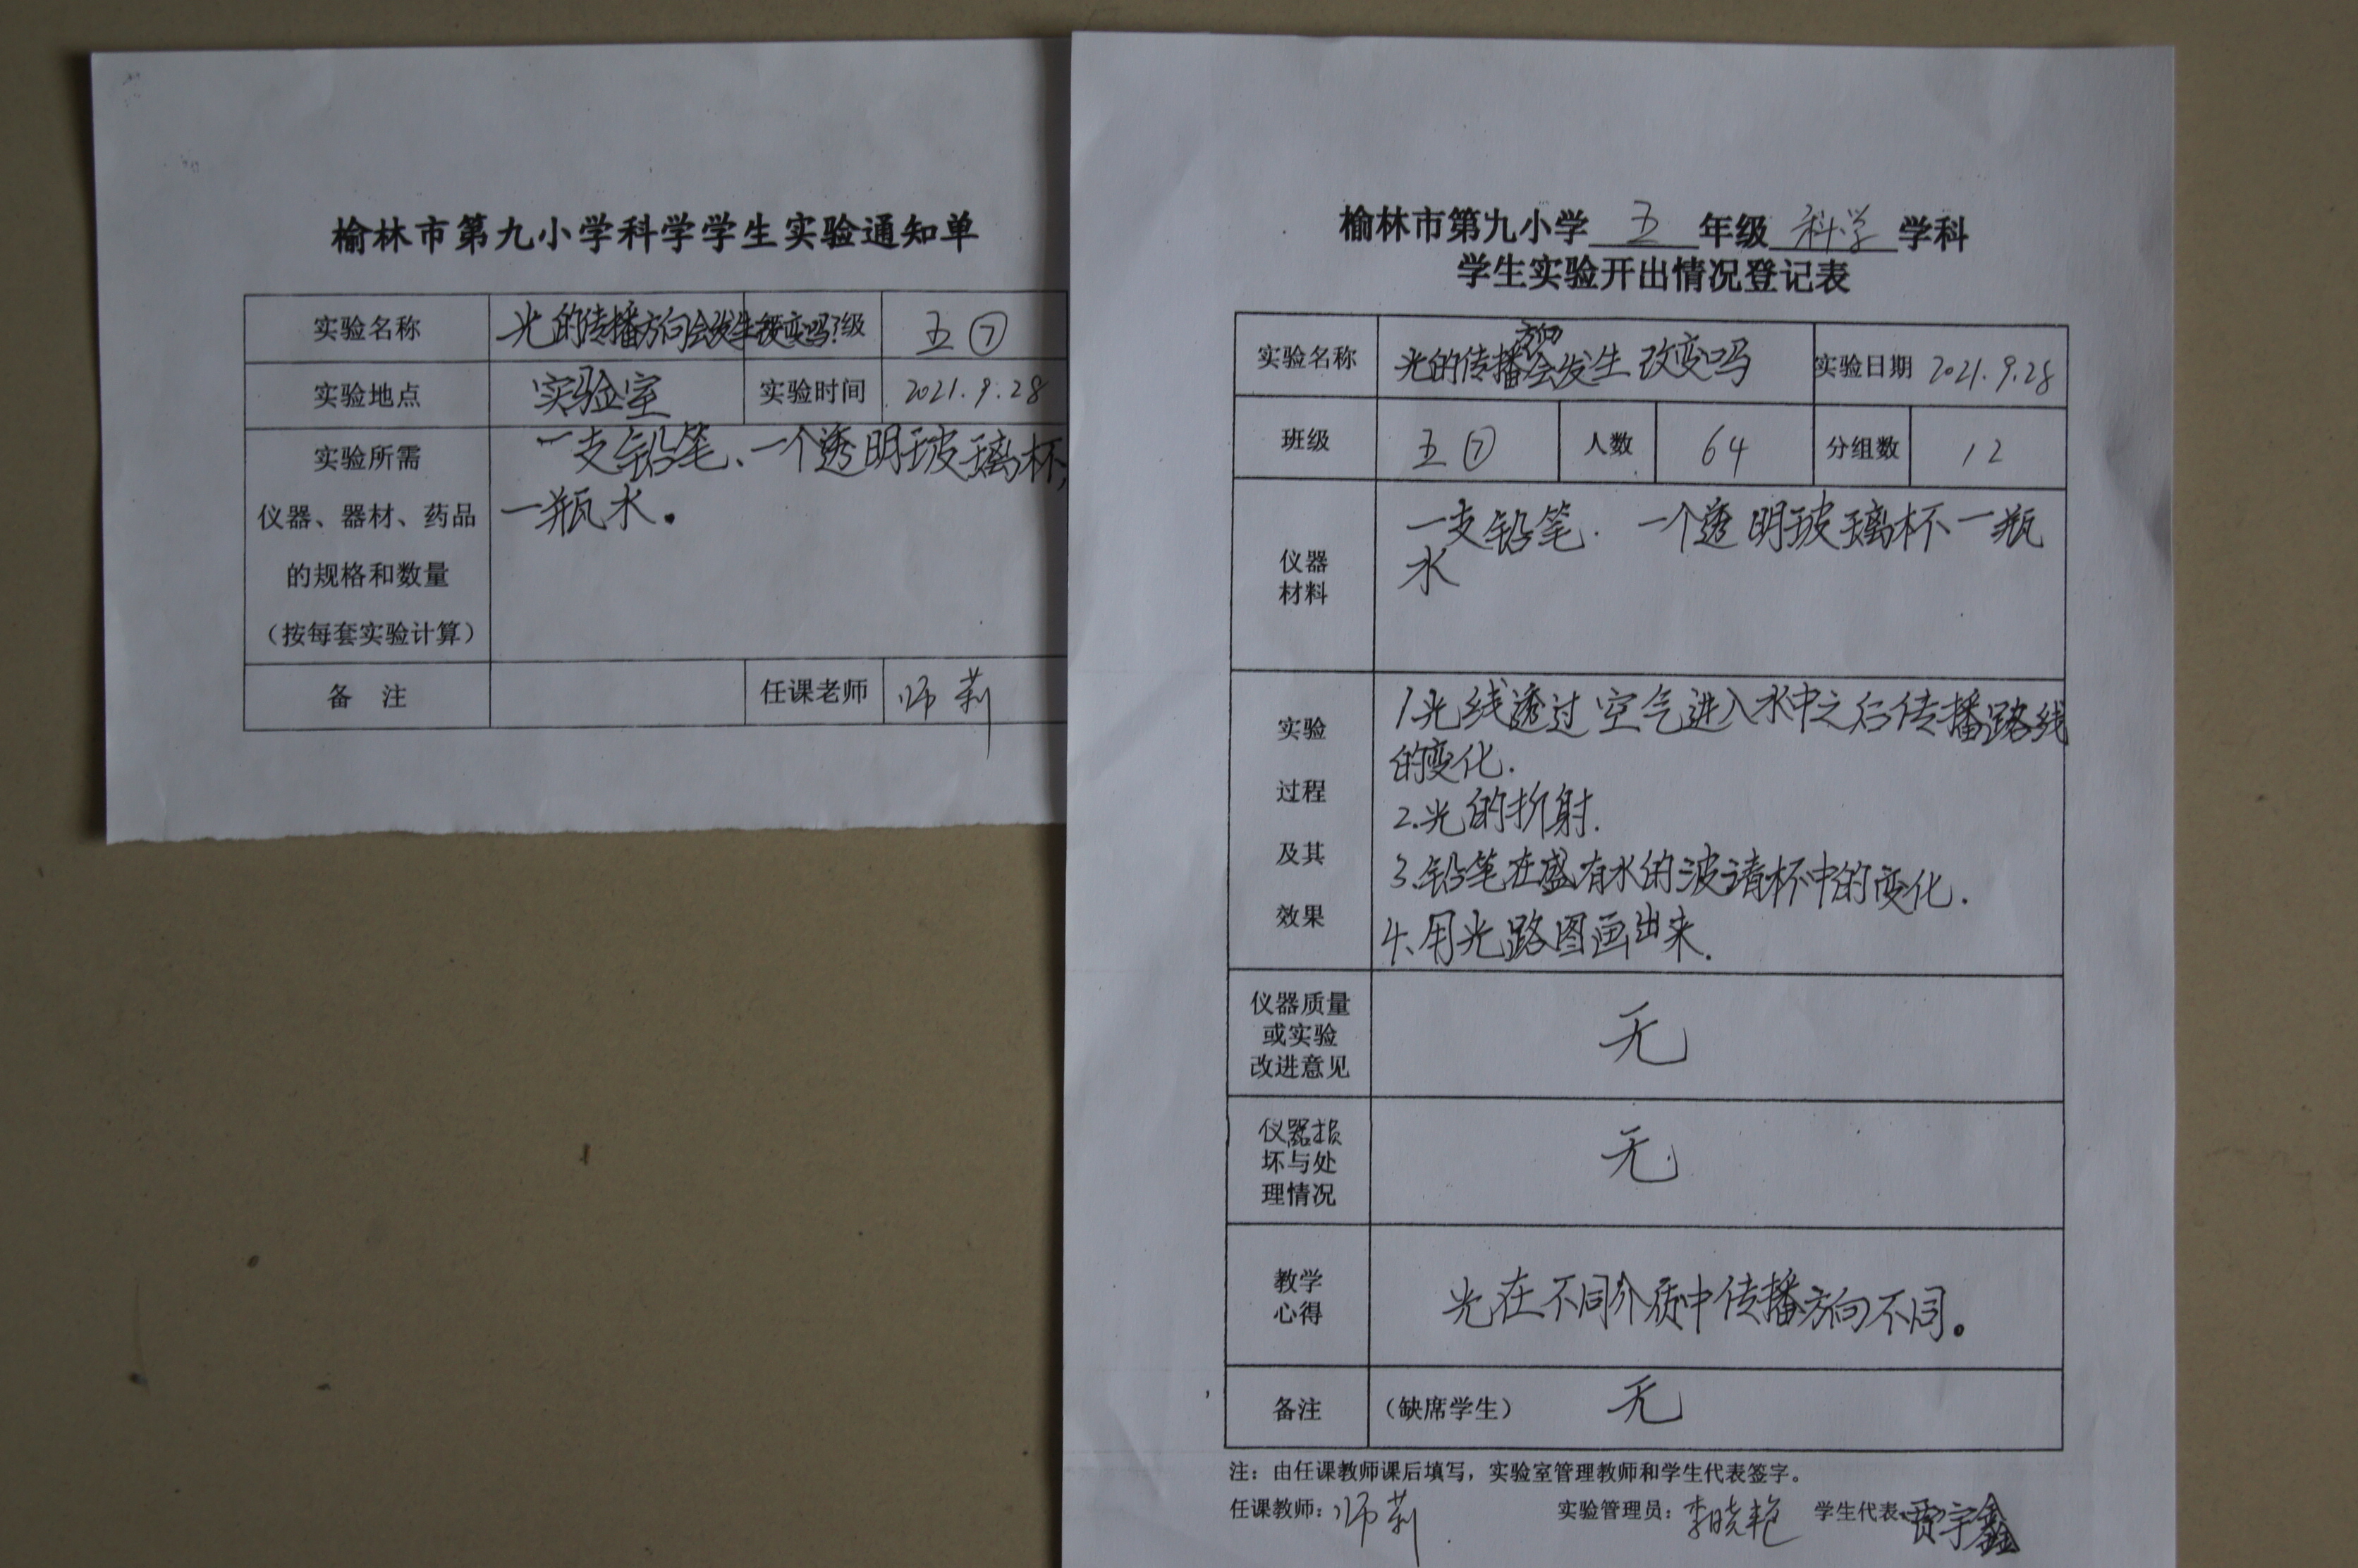 榆林市第九小学科学学生实验通知单
实验名称 光的传播方向会发生改变吗? 级 五⑦
实验地点 实验室 实验时间 2021.9.28
实验所需
仪器、器材、药品
的规格和数量
（按每套实验计算）
一支铅笔、一个透明玻璃杯,
一瓶水.
备 注 任课老师 师莉
榆林市第九小学 五 年级 科学 学科
学生实验开出情况登记表
实验名称 光的传播方向会发生改变吗 实验日期 2021.9.28
班级 五⑦ 人数 64 分组数 12
仪器
材料
一支铅笔. 一个透明玻璃杯 一瓶
水
实验
过程
及其
效果
1.光线透过空气进入水中之后传播路线
的变化.
2.光的折射.
3.铅笔在盛有水的波请杯中的变化.
4.用光路图画出来.
仪器质量
或实验
改进意见
无
仪器损
坏与处
理情况
无
教学
心得
光在不同介质中传播方向不同。
备注 （缺席学生） 无
注：由任课教师课后填写，实验室管理教师和学生代表签字。
任课教师：师莉 实验管理员：李晓艳 学生代表 贾宇鑫